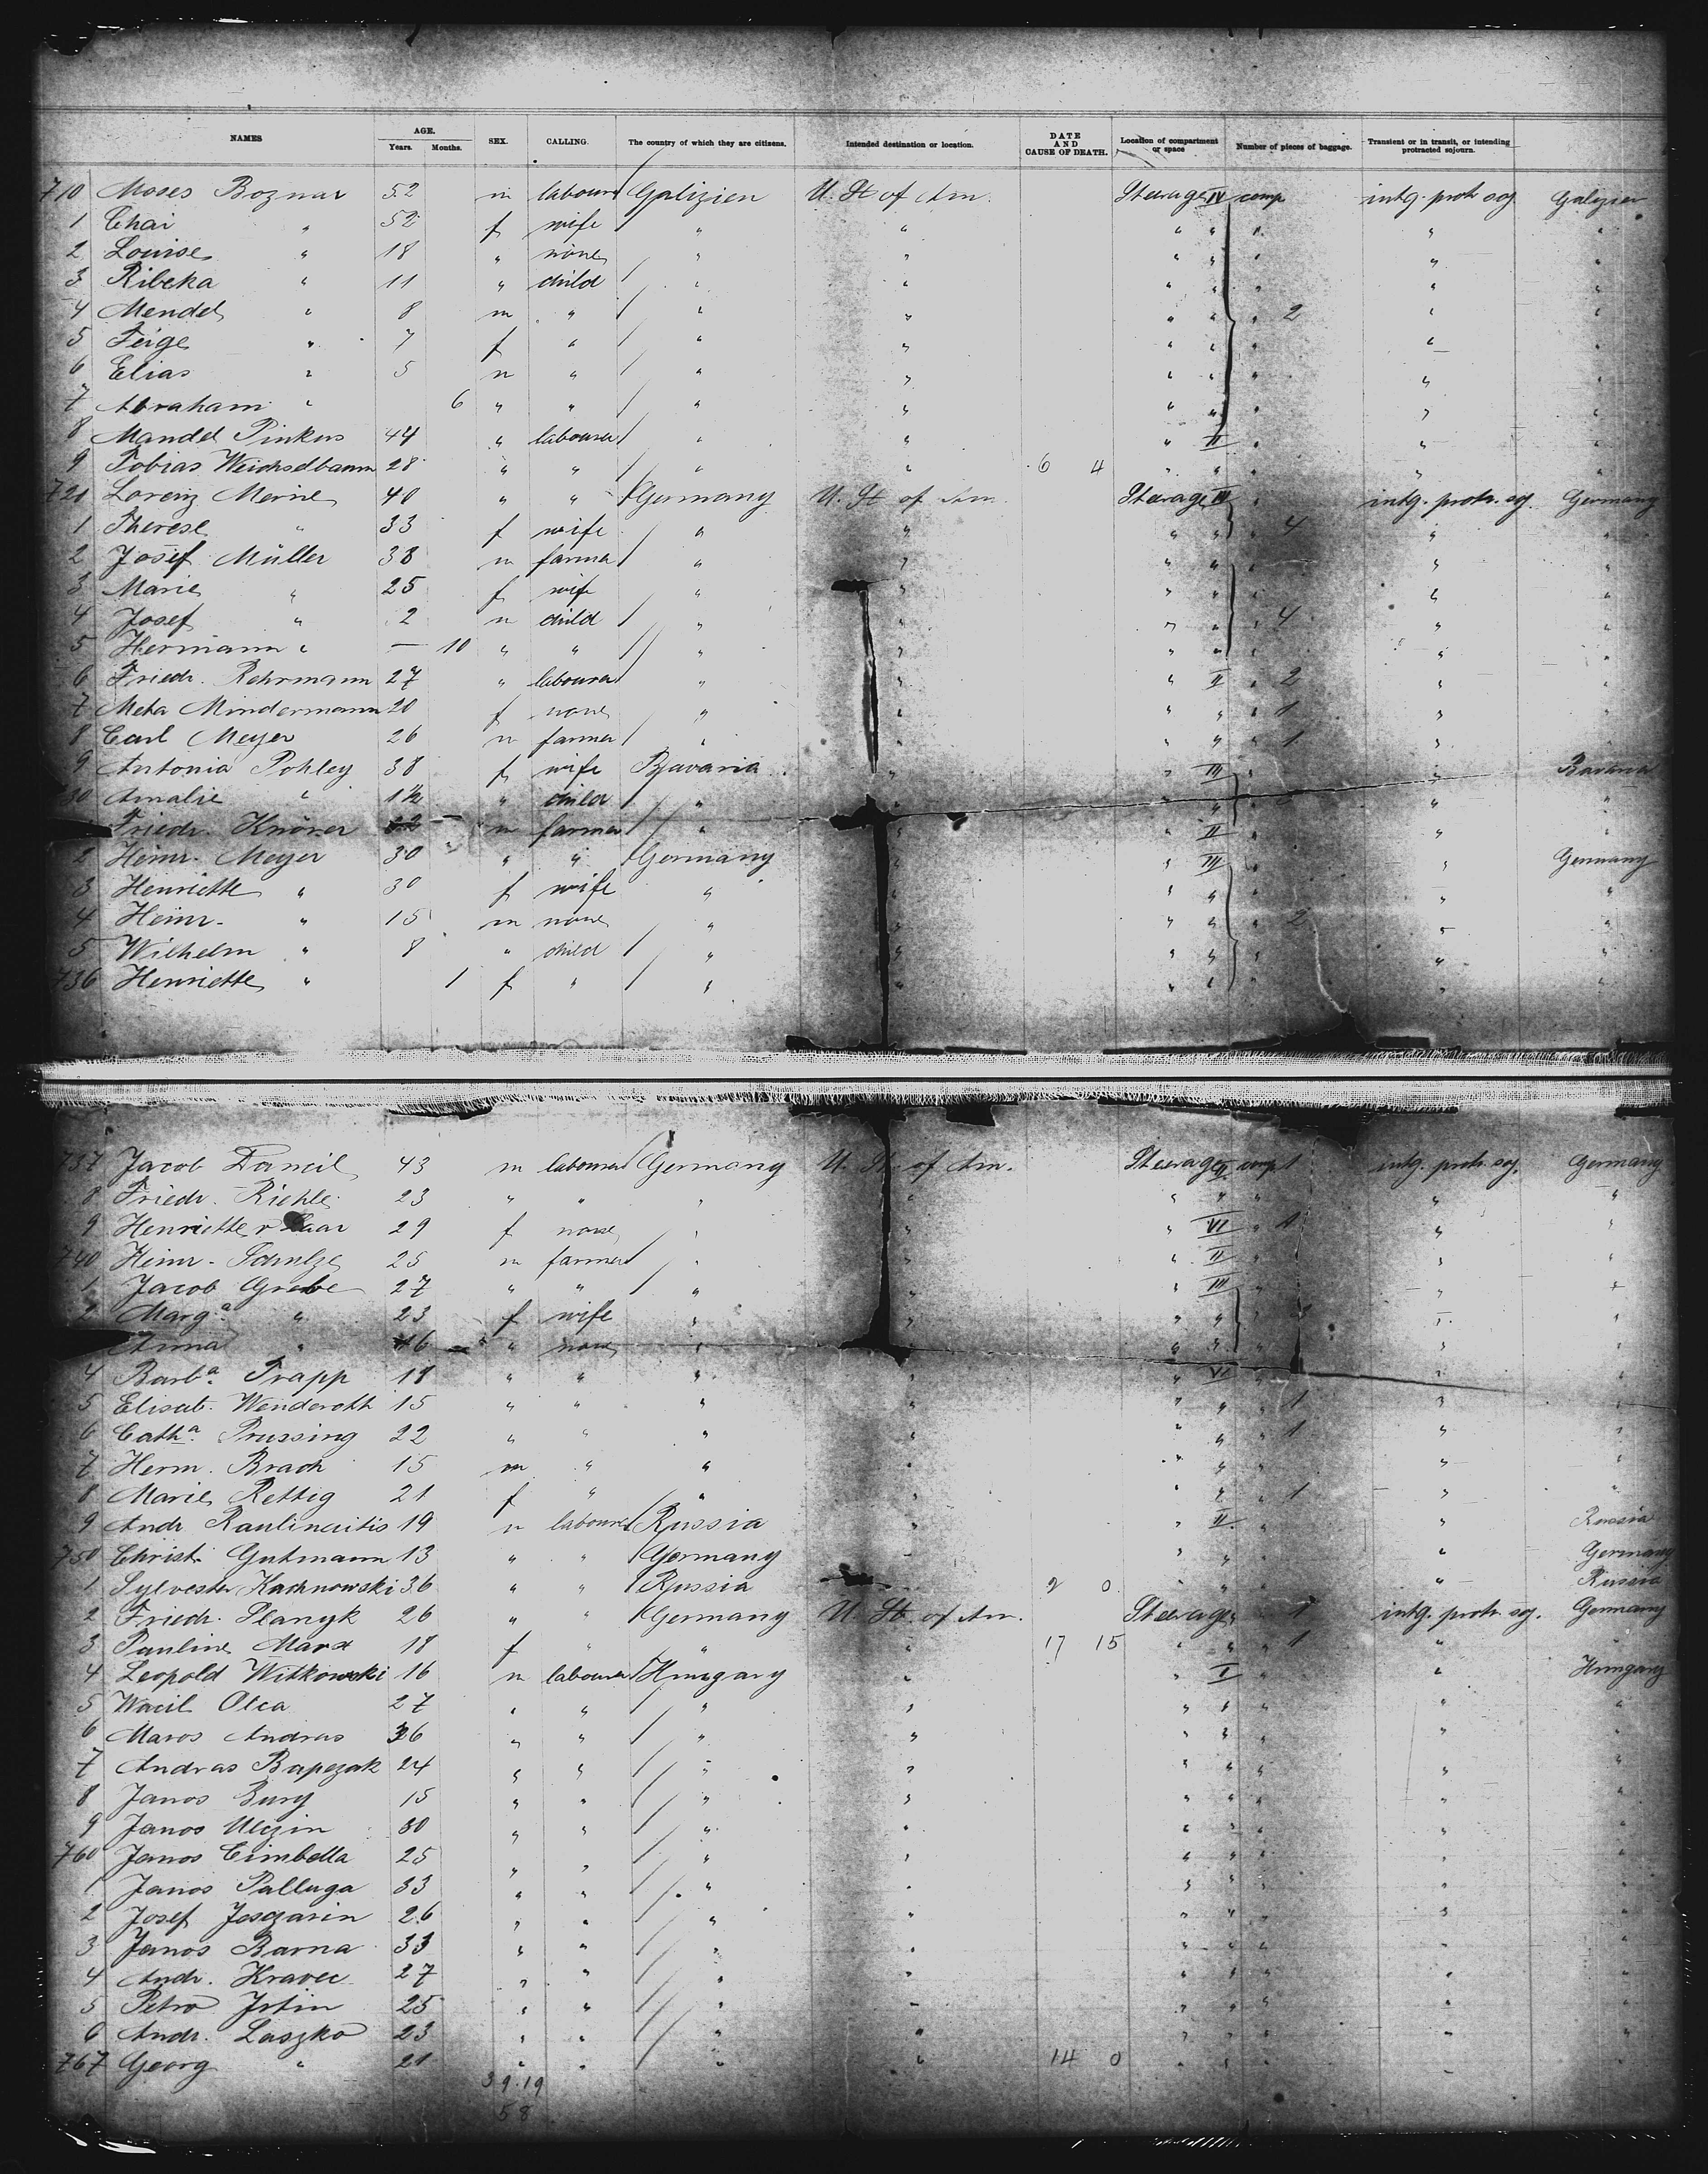 NAMES AGE. Years. Months. SEX. CALLING. The country of which they are citizens. Intended destination or location. DATE AND CAUSE OF DEATH. Location of compartment or space Number of pieces of baggage. Transient or in transit, or intending protracted sojourn.
710 Moses Boznar 52 m labourer Galizien U. St of Am. Steerage IV comp intg. protr soj Galizien
1 Chai " 52 f wife " " " " " " "
2 Louise " 18 " none " " " " " " "
3 Ribeka " 11 " child " " " " " " "
4 Mendel " 8 m " " " " " " 2 " "
5 Feige " 7 f " " " " " " " "
6 Elias " 5 m " " " " " " " "
7 Abraham " 6 " " " " " " " " "
8 Mandel Pinkus 44 " labourer " " " II " " "
9 Tobias Weichselbaum 28 " " " " 6 4 " " " " "
720 Lorenz Merine 40 " " Germany U. St of Am. Steerage III " intg. protr. soj. Germany
1 Therese " 33 f wife " " " " " 4 " "
2 Josef Müller 38 m farmer " " " " " " "
3 Marie " 25 f wife " " " " " " "
4 Josef " 2 m child " " " " " 4 " "
5 Hermann " — 10 " " " " " " " "
6 Friedr. Rehrmann 27 " labourer " " II " 2 " "
7 Meta Mindermann 20 f none " " " " " 1 " "
8 Carl Meyer 26 m farmer " " " " " 1 " "
9 Antonia Pohley 38 f wife Bavaria " " III " Bavaria
730 Amalie " 1½ " child " " " " "
Friedr. Knörer m farmer " " " II " "
2 Heinr. Meyer 30 " " Germany " " III " Germany
3 Henriette " 30 f wife " " " " " "
4 Heinr. " 15 m none " " " " 2 " "
5 Wilhelm " 8 " child " " " " " "
736 Henriette " 1 f " " " " " " "
737 Jacob 43 m labourer Germany U. St. of Am. Steerage II comp 1 intg. protr. soj. Germany
8 Friedr. Riehle 23 " " " " " " " " "
9 Henriette v 29 f none " " " VI " 1 " "
740 Heinr. 25 m farmer " " " II " " "
1 Jacob Grebe 27 " " " " " III " "
2 Marg.ª " 23 f wife " " " " " "
Anna " 16 " none " " " " " "
4 Barb.ª Trapp 18 " " " " " VI " " "
5 Elisab. Wenderoth 15 " " " " " " 1 " "
6 Cath.ª Prussing 22 " " " " " " 1 " "
7 Herm. Brach 15 m " " " " " " " "
8 Marie Rettig 21 f " " " " " " 1 " "
9 Andr. Raulinaitis 19 m labourer Russia " " II " " Russia
750 Christ. Gutmann 13 " " Germany " " " " " Germany
1 Sylvester Kachnowski 36 " " Russia 2 0 " " " " Russia
2 Friedr. Planyk 26 " " Germany U. St. of Am. Steerage " 1 intg. protr. soj. Germany
3 Pauline Marx 18 f " " " 17 15 " " " 1 " "
4 Leopold Witkowski 16 m labourer Hungary " " I " " Hungary
5 Wacil Olca 27 " " " " " " " " "
6 Maros Andras 36 " " " " " " " " "
7 Andras Bapezak 24 " " " " " " " " "
8 Janos Bury 15 " " " " " " " " "
9 Janos Ulizin 30 " " " " " " " " "
760 Janos Cimbella 25 " " " " " " " " "
1 Janos Palluga 33 " " " " " " " " "
2 Josef Joszarin 26 " " " " " " " " "
3 Janos Barna 33 " " " " " " " " "
4 Andr. Kravec 27 " " " " " " " " "
5 Petro Jstin 25 " " " " " " " " "
6 Andr. Laszko 23 " " " " " " " " "
767 Georg " 21 " " " " 14 0 " " " " "
39.19
58